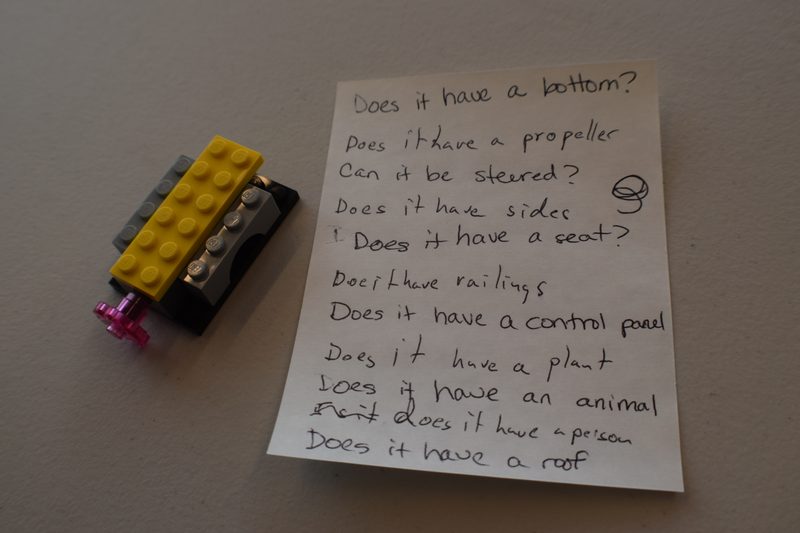 Does it have a bottom?
Does it have a propeller
Can it be steered?
Does it have sides
Does it have a seat?
Does it have railings
Does it have a control panel
Does it have a plant
Does it have an animal
does it have a person
Does it have a roof